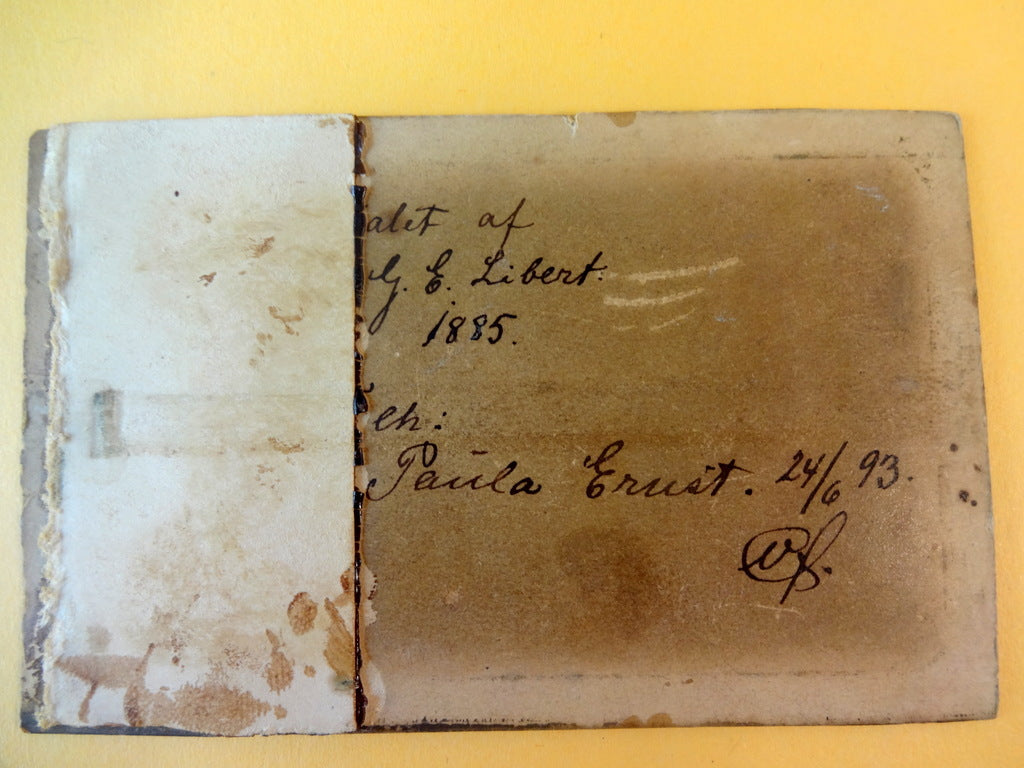 alet af
G. E. Libert.
1885.
en:
Paula Ernst. 24/6 93.